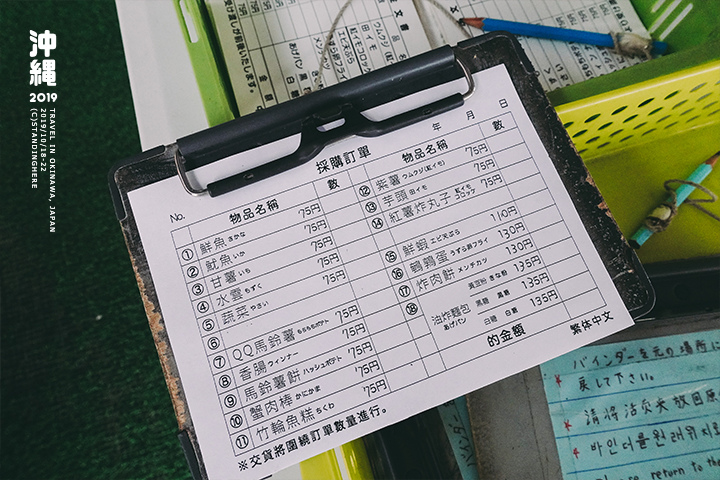 沖
縄
2019
TRAVEL IN OKINAWA, JAPAN
2019/10/18-22
(C)STANDINGHERE
採購訂單
年 月 日
No.
物品名稱 數
① 鮮魚 さかな 75円
② 魷魚 いか 75円
③ 甘薯 いも 75円
④ 水雲 もずく 75円
⑤ 蔬菜 やさい 75円
⑥
⑦ QQ馬鈴薯 もちもちポテト 75円
⑧ 香腸 ウィンナー 75円
⑨ 馬鈴薯餅 ハッシュポテト 75円
⑩ 蟹肉棒 かにかま 75円
⑪ 竹輪魚糕 ちくわ 75円
物品名稱 數
⑫ 紫薯 ウムクジ(紅イモ) 75円
⑬ 芋頭 田イモ 75円
⑭ 紅薯炸丸子 紅イモコロッケ 75円
⑮ 鮮蝦 エビ天ぷら 110円
⑯ 鵪鶉蛋 うずら卵フライ 130円
⑰ 炸肉餅 メンチカツ 130円
⑱ 油炸麵包 あげパン
黃豆粉 きな粉 135円
黑糖 黒糖 135円
白糖 白糖 135円
的金額
※交貨將圍繞訂單數量進行。
繁体中文
バインダーを元の場所に
戻して下さい。
바인더를 원래위치로